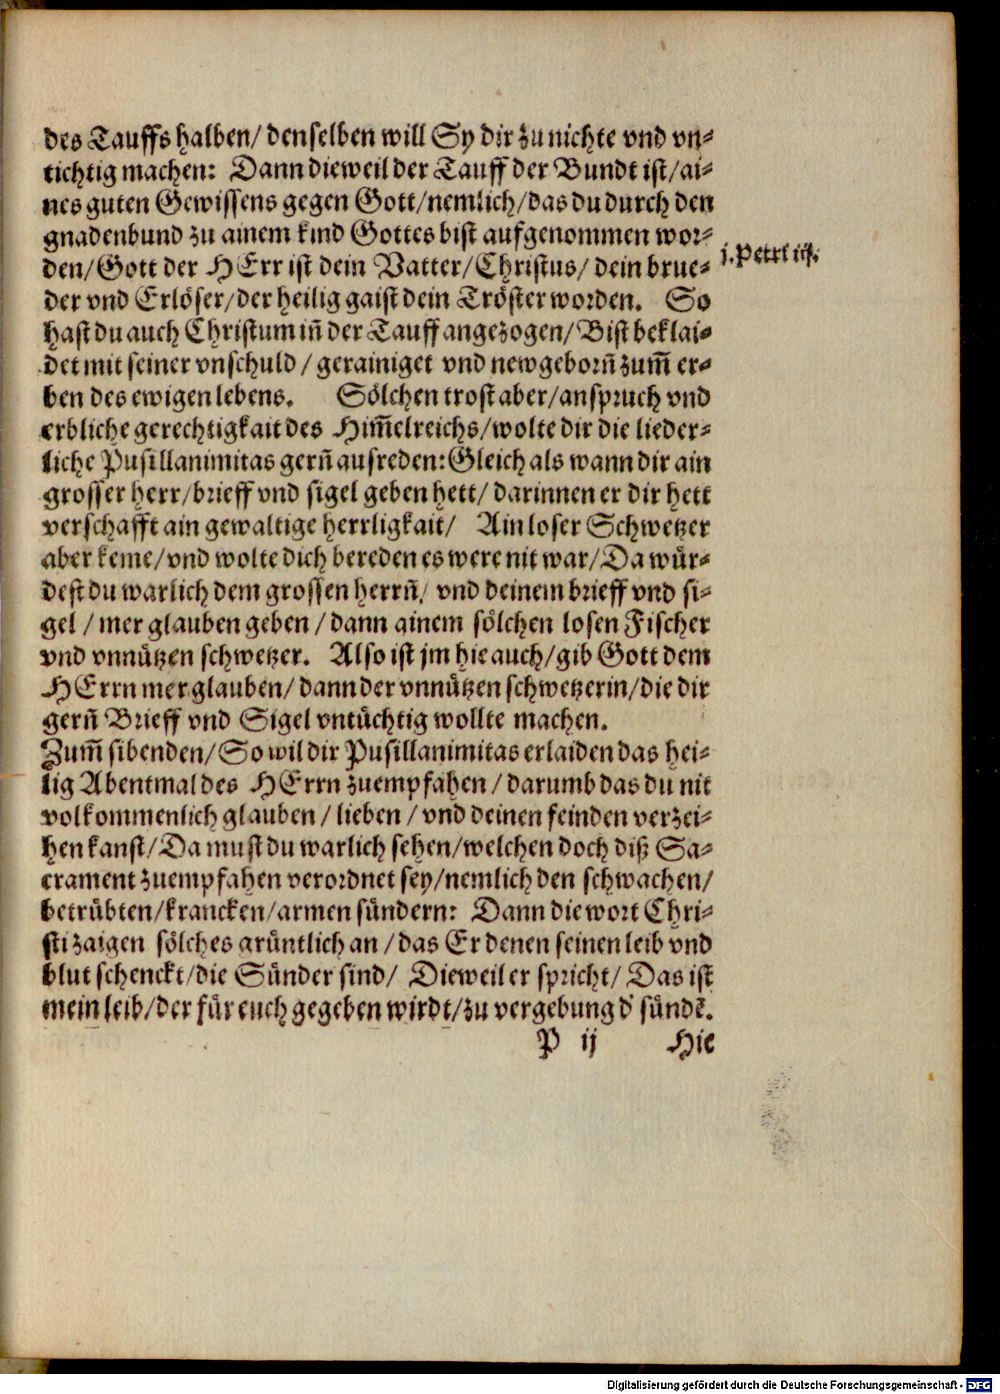 des Tauffs halben/ denselben will Sy dir zu nichte vnd vn-
tichtig machen: Dann dieweil der Tauff der Bundt ist/ ai-
nes guten Gewissens gegen Gott/ nemlich/ das du durch den
gnadenbund zu ainem kind Gottes bist aufgenommen wor-
den/ Gott der HErr ist dein Vatter/ Christus/ dein brue-
j. Petri iij.
der vnd Erlöser/ der heilig gaist dein Tröster worden. So
hast du auch Christum in̄ der Tauff angezogen/ Bist beklai-
det mit seiner vnschuld/ gerainiget vnd newgeborn̄ zum̄ er-
ben des ewigen lebens. Sölchen trost aber/ anspruch vnd
erbliche gerechtigkait des Him̄elreichs/ wolte dir die lieder-
liche Pusillanimitas gern̄ ausreden: Gleich als wann dir ain
grosser herr/ brieff vnd sigel geben hett/ darinnen er dir hett
verschafft ain gewaltige herrligkait/ Ain loser Schwetzer
aber keme/ vnd wolte dich bereden es were nit war/ Da wür-
dest du warlich dem grossen herrn̄/ vnd deinem brieff vnd si-
gel/ mer glauben geben/ dann ainem sölchen losen Fischer
vnd vnnützen schwetzer. Also ist jm hie auch/ gib Gott dem
HErrn mer glauben/ dann der vnnützen schwetzerin/ die dir
gern̄ Brieff vnd Sigel vntüchtig wollte machen.
Zum̄ sibenden/ So wil dir Pusillanimitas erlaiden das hei-
lig Abentmal des HErrn zuempfahen/ darumb das du nit
volkommenlich glauben/ lieben/ vnd deinen feinden verzei-
hen kanst/ Da must du warlich sehen/ welchen doch diß Sa-
crament zuempfahen verordnet sey/ nemlich den schwachen/
betrübten/ krancken/ armen sündern: Dann die wort Chri-
sti zaigen sölches grüntlich an/ das Er denen seinen leib vnd
blut schenckt/ die Sünder sind/ Dieweil er spricht/ Das ist
mein leib/ der für euch gegeben wirdt/ zu vergebung d' sündē.
P ij Hie
Digitalisierung gefördert durch die Deutsche Forschungsgemeinschaft - DFG